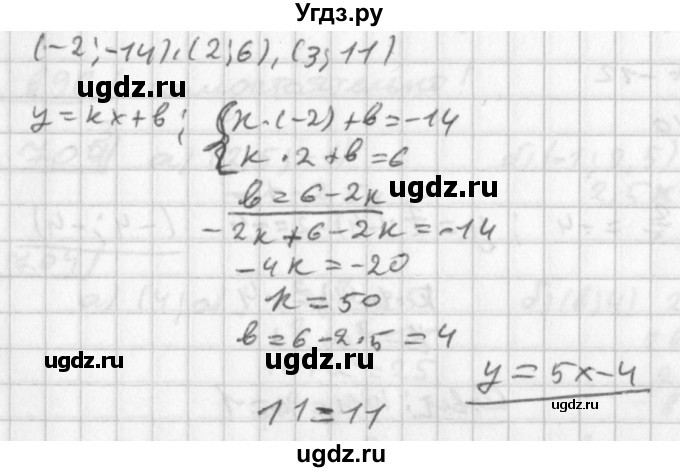 Угдз.ру
(-2; -14), (2; 6), (3; 11)
ugdz.ru
y = kx + b; {k · (-2) + b = -14
{k · 2 + b = 6
ugdz.ru
b = 6 - 2k
-2k + 6 - 2k = -14
-4k = -20
k = 50
b = 6 - 2 · 5 = 4
ugdz.ru ugdz.ru
y = 5x - 4
ugdz.ru
11 = 11
ugdz.ru